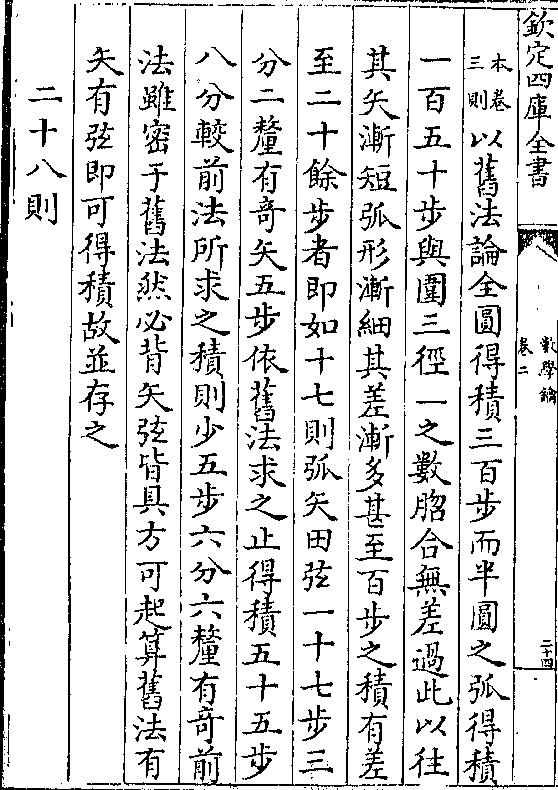 欽定四庫全書
數學鑰
卷二
二十四
本卷
三則以舊法論全圓得積三百步而半圓之弧得積
一百五十步與圍三徑一之數脗合無差過此以往
其矢漸短弧形漸細其差漸多甚至百步之積有差
至二十餘步者即如十七則弧矢田弦一十七步三
分二釐有奇矢五步依舊法求之止得積五十五步
八分較前法所求之積則少五步六分六釐有奇前
法雖密于舊法然必背矢弦皆具方可起算舊法有
矢有弦即可得積故並存之
二十八則